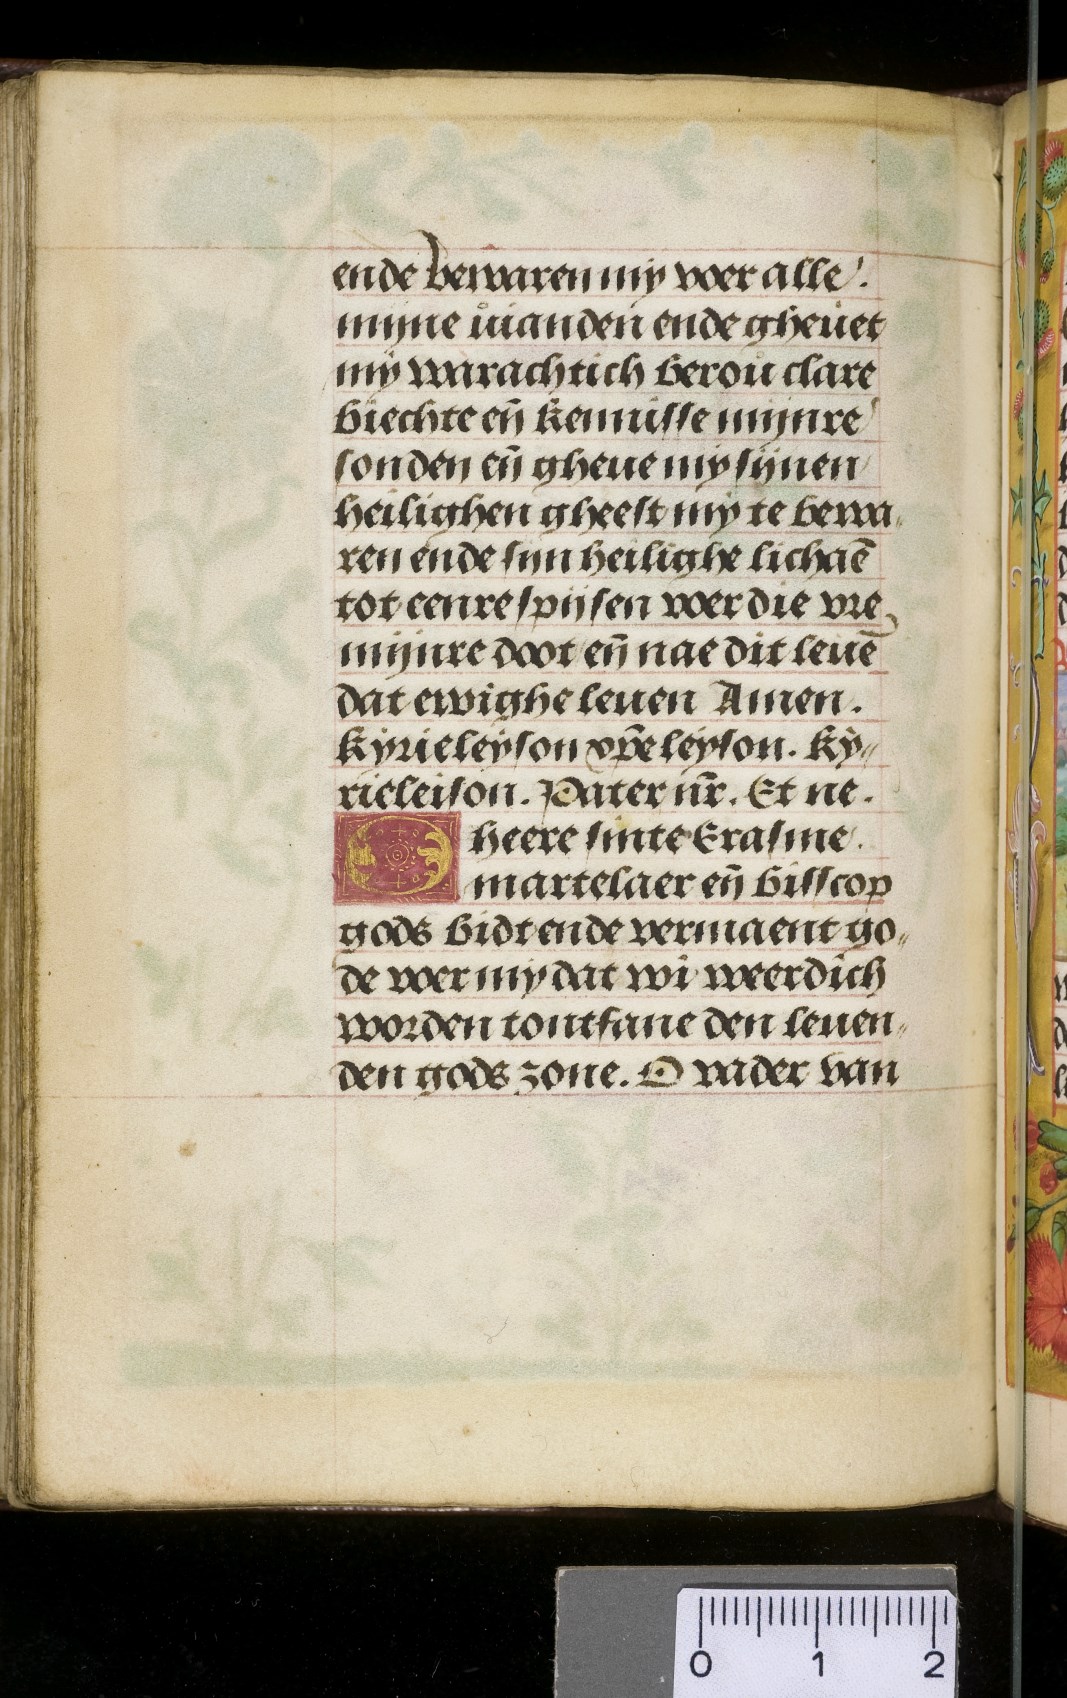 ende bewaren my voer alle.
mijne uianden ende gheuet
my warachtich berou clare
biechte eñ kennisse mijnre
sonden eñ gheue my sijnen
heilighen gheest my te bewa„
ren ende sijn heilighe lichaē
tot eenre spijsen voer die vre
mijnre doot eñ nae dit leuē
dat ewighe leuen Amen.
kyrieleyson xp̄eleyson. ky„
rieleison. Pater nr̄. Et ne.
O heere sinte Erasme.
martelaer eñ bisscop
gods bidt ende vermaent go„
de voer my dat wi weerdich
worden tontfane den leuen„
den gods zone. O vader van
0 1 2